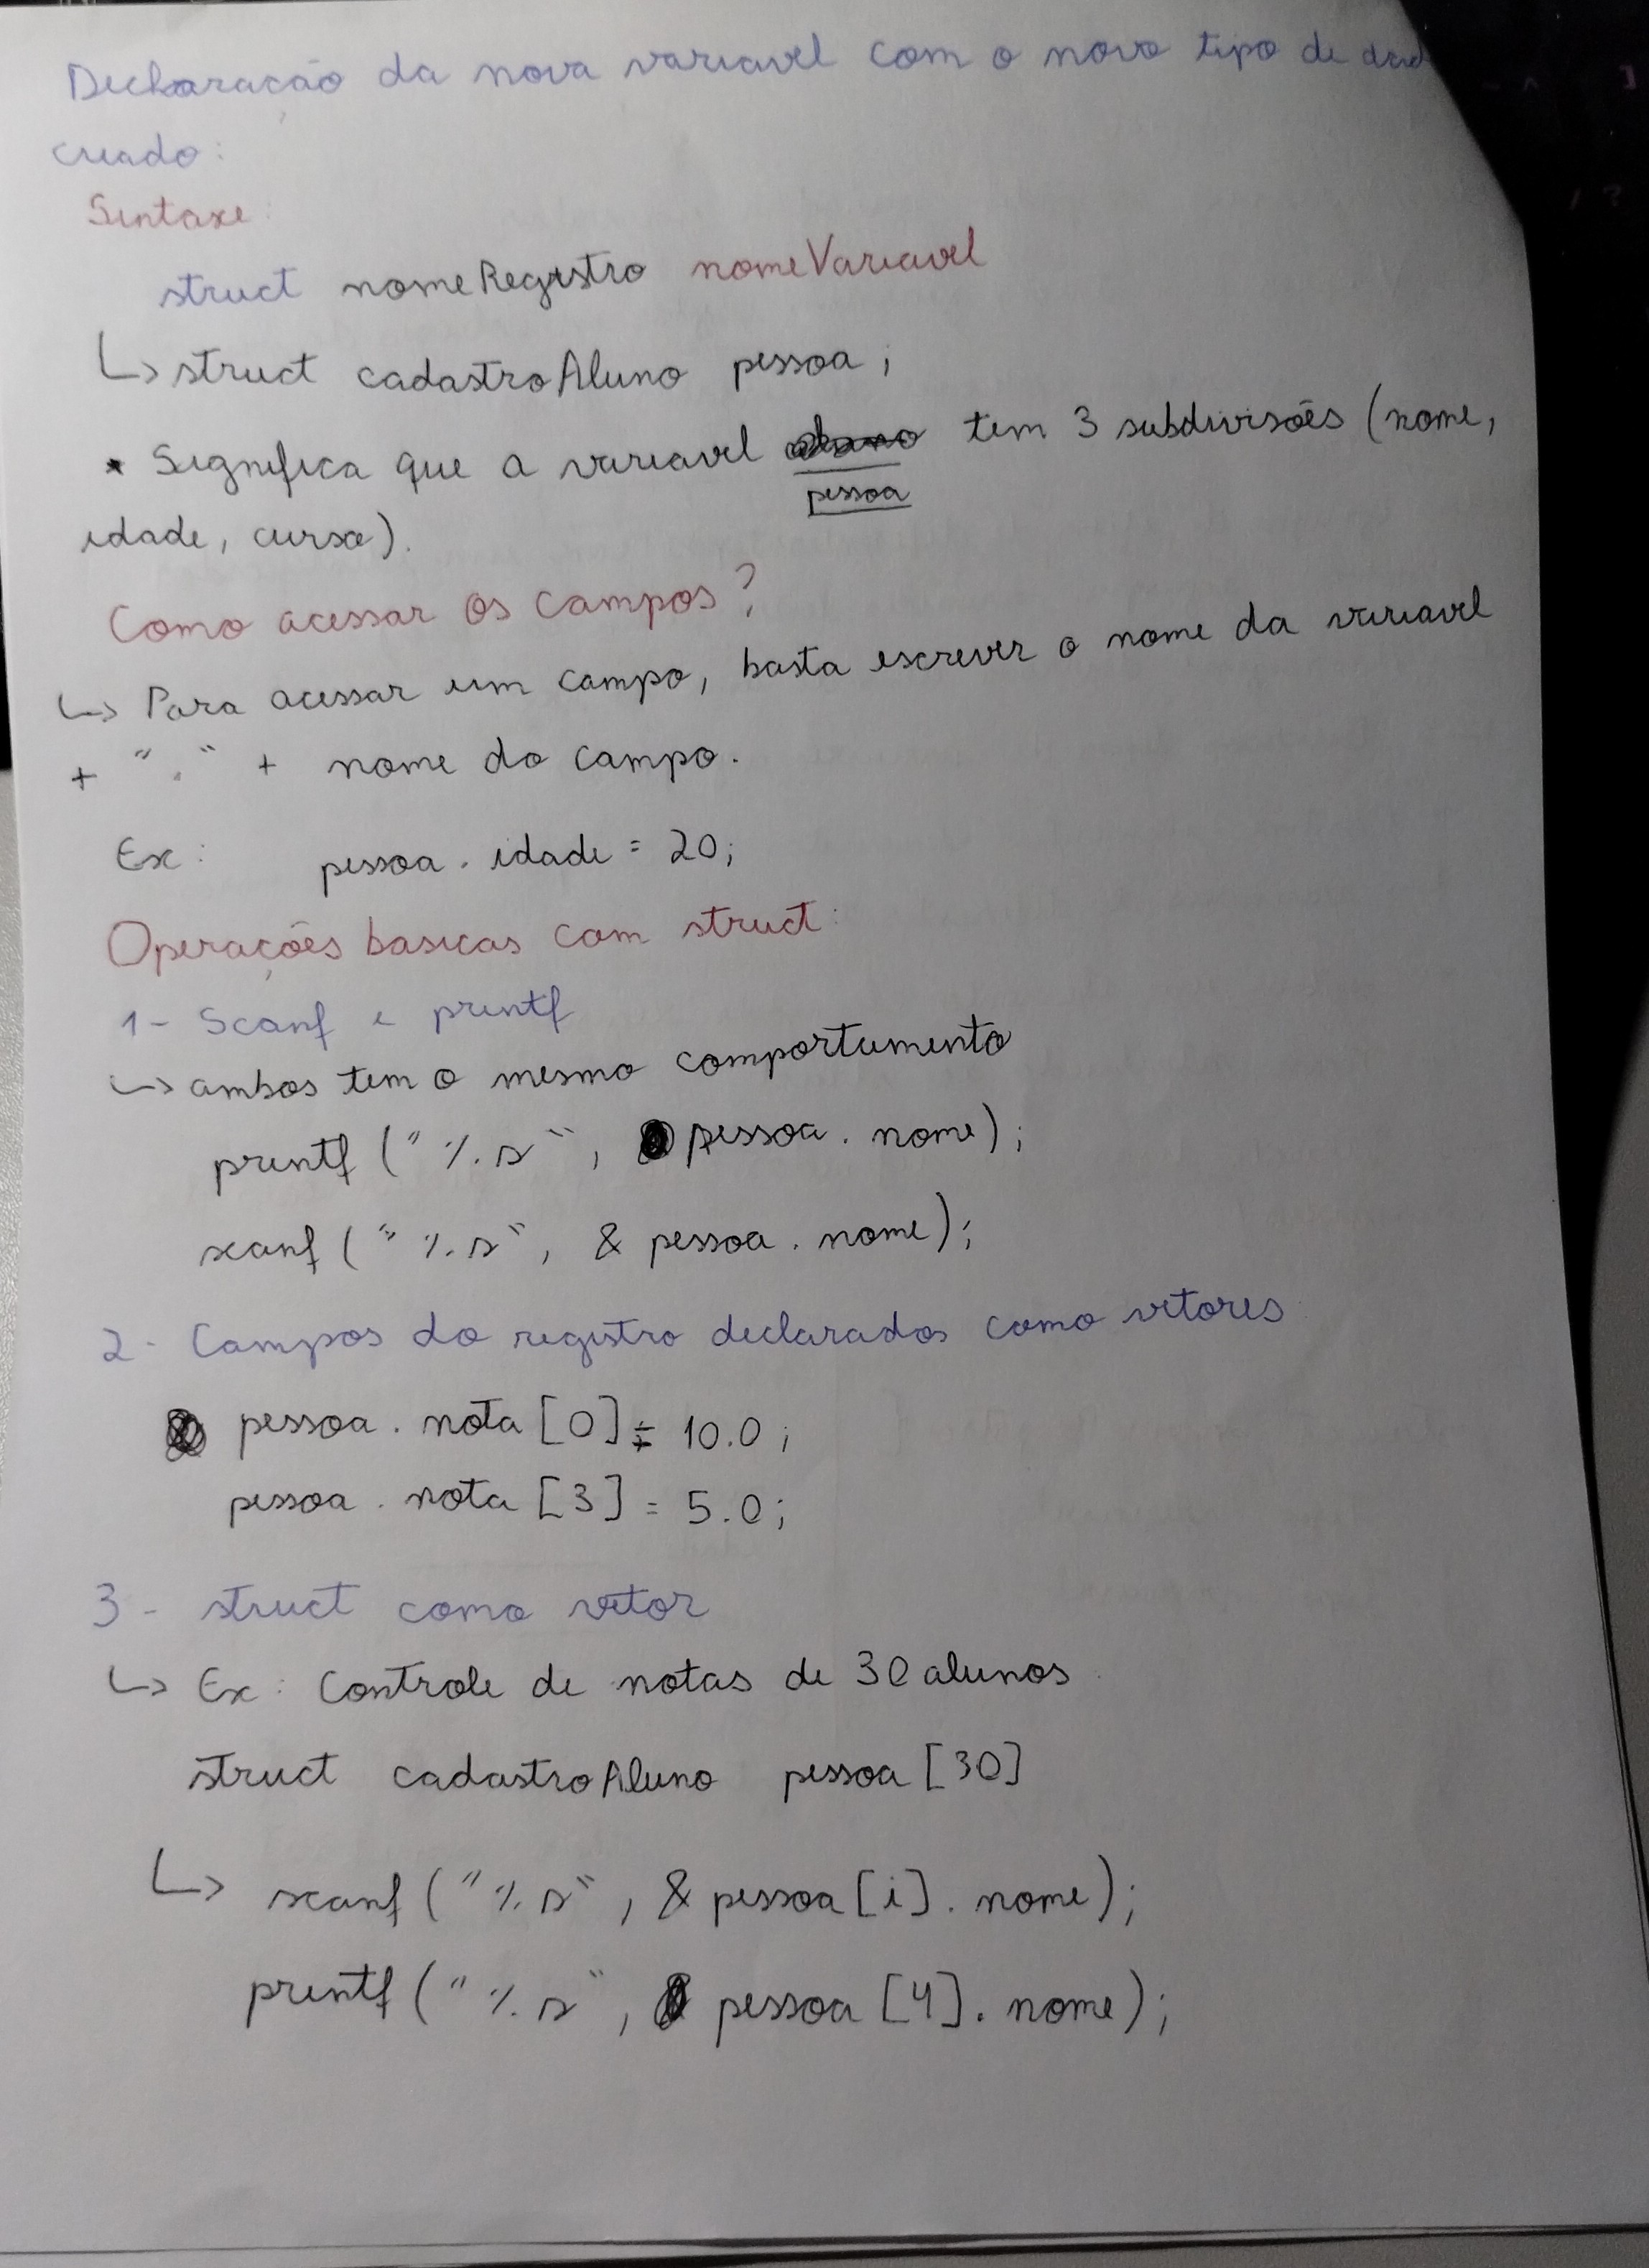 Declaração da nova variavel com o novo tipo de dad
criado:
Sintaxe:
struct nomeRegistro nomeVariavel
↳ struct cadastroAluno pessoa;
* Significa que a variavel tem 3 subdivisões (nome,
pessoa
idade, curso).
Como acessar os campos?
↳ Para acessar um campo, basta escrever o nome da variavel
+ "." + nome do campo.
Ex: pessoa.idade = 20;
Operações basicas com struct:
1- Scanf e printf
↳ ambos tem o mesmo comportamento
printf ("%s", pessoa.nome);
scanf ("%s", & pessoa.nome);
2- Campos do registro declarados como vetores
pessoa.nota [0] = 10.0;
pessoa.nota [3] = 5.0;
3- struct como vetor
↳ Ex: Controle de notas de 30 alunos.
struct cadastroAluno pessoa [30]
↳ scanf ("%s", & pessoa [i].nome);
printf ("%s", pessoa [4].nome);